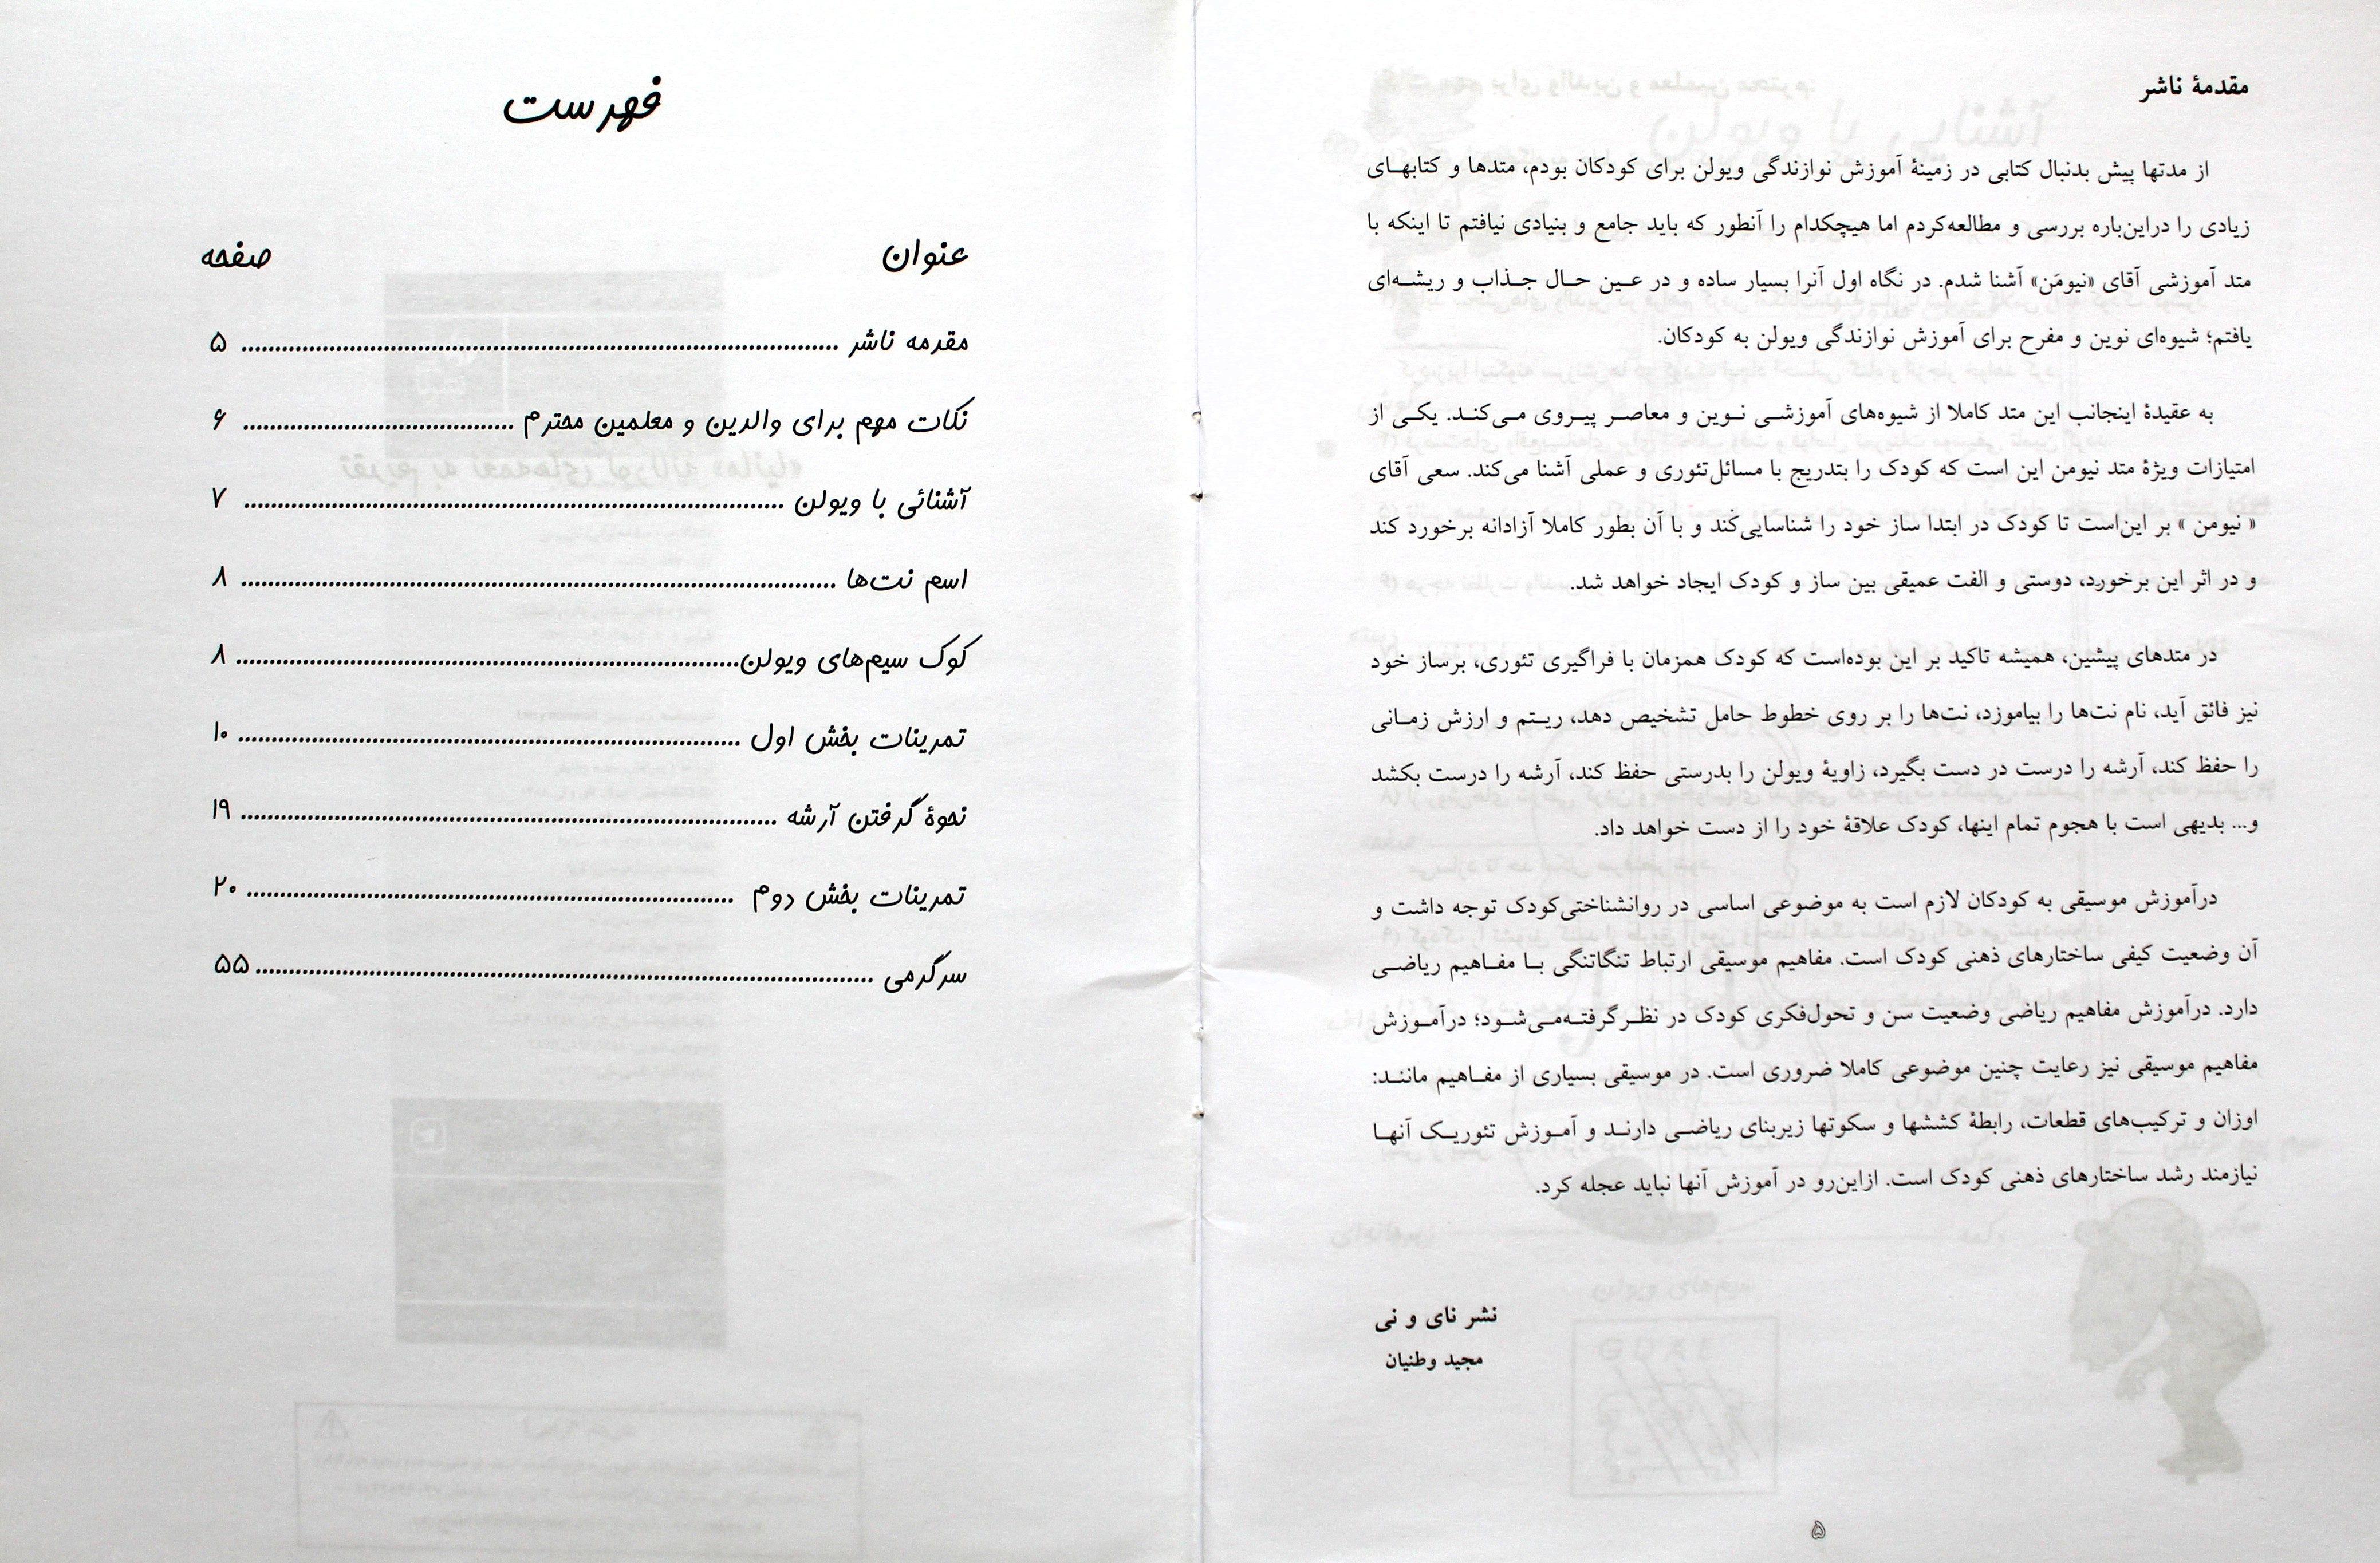 مقدمهٔ ناشر
از مدتها پیش بدنبال کتابی در زمینهٔ آموزش نوازندگی ویولن برای کودکان بودم، متدها و کتابهـای
زیادی را دراین‌باره بررسی و مطالعه‌کردم اما هیچکدام را آنطور که باید جامع و بنیادی نیافتم تا اینکه با
متد آموزشی آقای «نیومَن» آشنا شدم. در نگاه اول آنرا بسیار ساده و در عـین حـال جـذاب و ریشـه‌ای
یافتم؛ شیوه‌ای نوین و مفرح برای آموزش نوازندگی ویولن به کودکان.
به عقیدهٔ اینجانب این متد کاملا از شیوه‌های آموزشـی نـوین و معاصـر پیـروی مـی‌کنـد. یکـی از
امتیازات ویژهٔ متد نیومن این است که کودک را بتدریج با مسائل‌تئوری و عملی آشنا می‌کند. سعی آقای
« نیومن » بر این‌است تا کودک در ابتدا ساز خود را شناسایی‌کند و با آن بطور کاملا آزادانه برخورد کند
و در اثر این برخورد، دوستی و الفت عمیقی بین ساز و کودک ایجاد خواهد شد.
در متدهای پیشین، همیشه تاکید بر این بوده‌است که کودک همزمان با فراگیری تئوری، برساز خود
نیز فائق آید، نام نت‌ها را بیاموزد، نت‌ها را بر روی خطوط حامل تشخیص دهد، ریـتم و ارزش زمـانی
را حفظ کند، آرشه را درست در دست بگیرد، زاویهٔ ویولن را بدرستی حفظ کند، آرشه را درست بکشد
و... بدیهی است با هجوم تمام اینها، کودک علاقهٔ خود را از دست خواهد داد.
درآموزش موسیقی به کودکان لازم است به موضوعی اساسی در روانشناختی‌کودک توجه داشت و
آن وضعیت کیفی ساختارهای ذهنی کودک است. مفاهیم موسیقی ارتباط تنگاتنگی بـا مفـاهیم ریاضـی
دارد. درآموزش مفاهیم ریاضی وضعیت سن و تحول‌فکری کودک در نظـرگرفتـه‌مـی‌شـود؛ درآمـوزش
مفاهیم موسیقی نیز رعایت چنین موضوعی کاملا ضروری است. در موسیقی بسیاری از مفـاهیم ماننـد:
اوزان و ترکیب‌های قطعات، رابطهٔ کششها و سکوتها زیربنای ریاضـی دارنـد و آمـوزش تئوریـک آنهـا
نیازمند رشد ساختارهای ذهنی کودک است. ازاین‌رو در آموزش آنها نباید عجله کرد.
نشر نای و نی
مجید وطنیان
۵
فهرست
عنوان صفحه
مقدمه ناشر ........ ۵
نکات مهم برای والدین و معلمین محترم ........ ۶
آشنائی با ویولن ........ ۷
اسم نت‌ها ........ ۸
کوک سیم‌های ویولن ........ ۸
تمرینات بخش اول ........ ۱۰
نحوهٔ گرفتن آرشه ........ ۱۹
تمرینات بخش دوم ........ ۲۰
سرگرمی ........ ۵۵